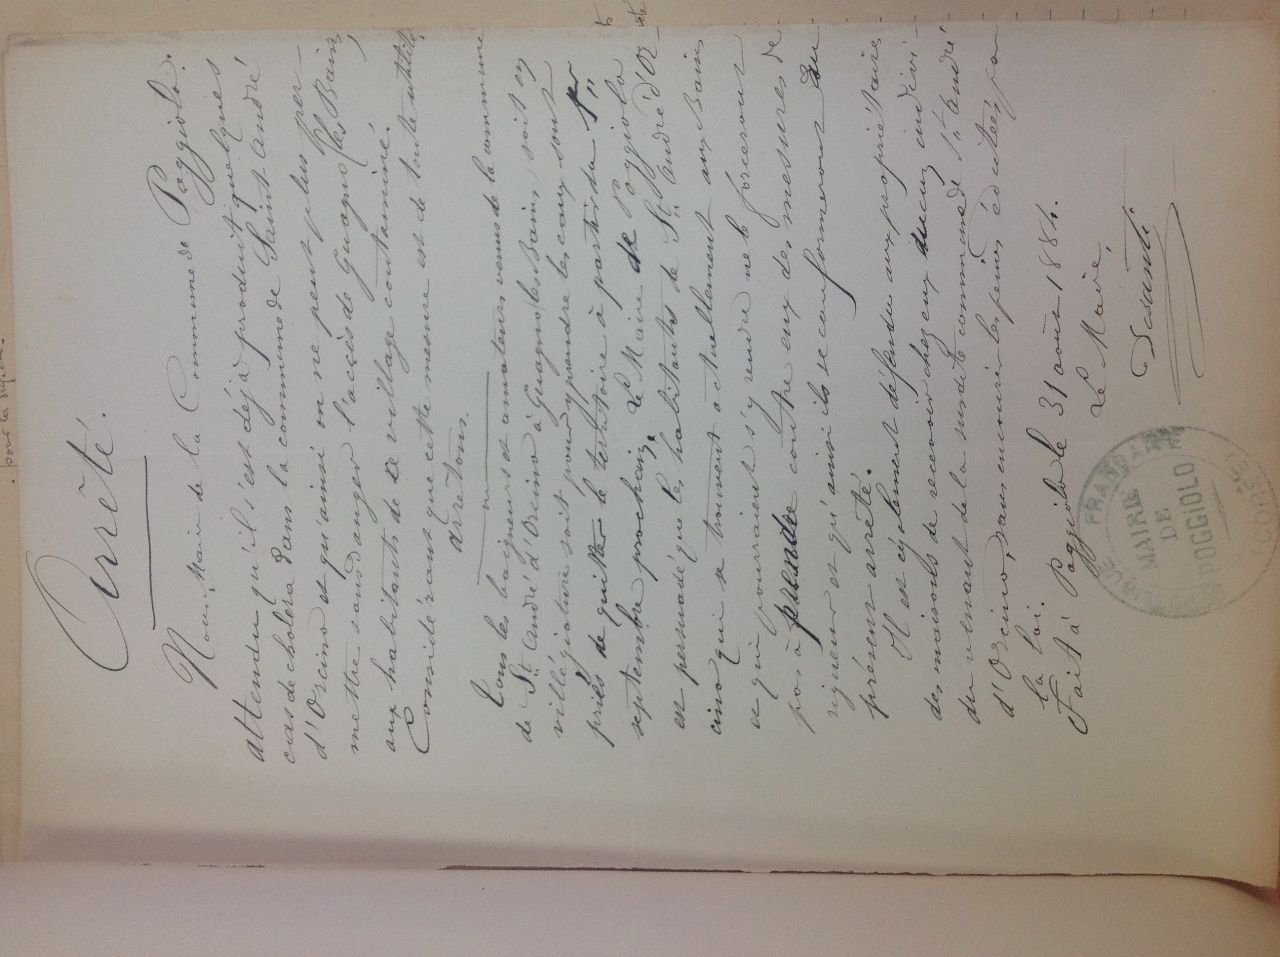 Arrêté.
Nous, Maire de la Commune de Poggiolo.
attendu qu'il s'est déjà produit quelques
cas de choléra dans la commune de Saint André
d'Orcino et qu'ainsi on ne peut plus per-
mettre sans danger l'accès de Guagno les Bains,
aux habitants de ce village contaminé.
Considérant que cette mesure est de toute utilité.
arretons.
Tous les baigneurs et amateurs venus de la commune
de St André d'Orcino à Guagno les Bains, soit en
villégiature soit pour y prendre les eaux sont
priés de quitter le territoire à partir du 1er
septembre prochain, Le Maire de Poggiolo
est persuadé que les habitants de St André d'Or-
cino qui se trouvent actuellement aux Bains
et qui pourraient s'y rendre ne le forceront
pas à prendre contre eux des mesures de
rigueur et qu'ainsi ils se conformeront au
présent arrêté.
Il est également défendu aux propriétaires
des maisons de recevoir chez eux aucun indivi-
du venant de la susdite commune de St André
d'Orcino, sans encourir les peines édictées par
la loi.
Fait à Poggiolo le 31 août 1884.
Le Maire,
RÉPUBLIQUE FRANÇAISE
MAIRIE
DE
POGGIOLO
(CORSE)
pour la